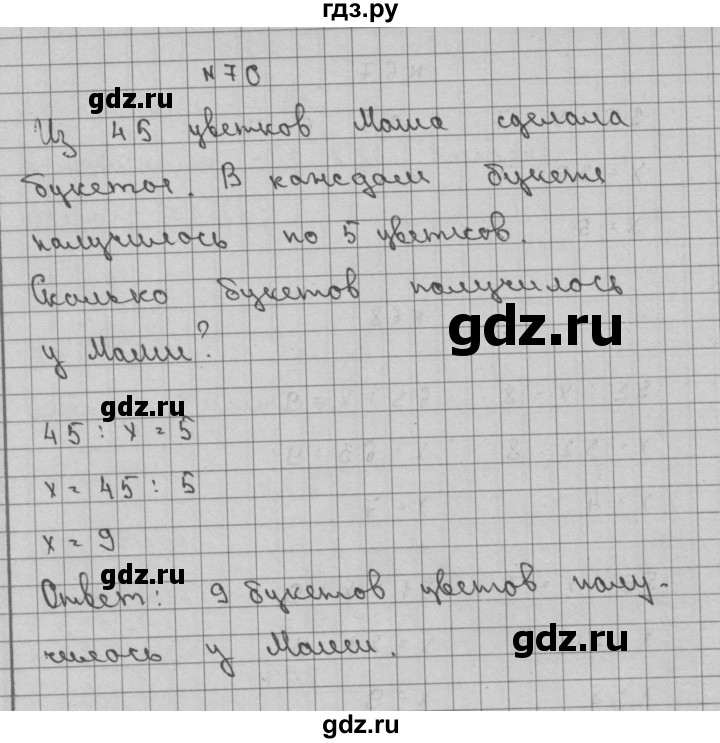 гдз.ру
№70
gdz.ru
Из 45 цветков Маша сделала
букеты. В каждом букете
получилось по 5 цветков.
Сколько букетов получилось
gdz.ru
у Маши?
gdz.ru
45 : x = 5
x = 45 : 5
x = 9
gdz.ru
Ответ: 9 букетов цветов полу-
чилось у Маши.
gdz.ru
gdz.ru